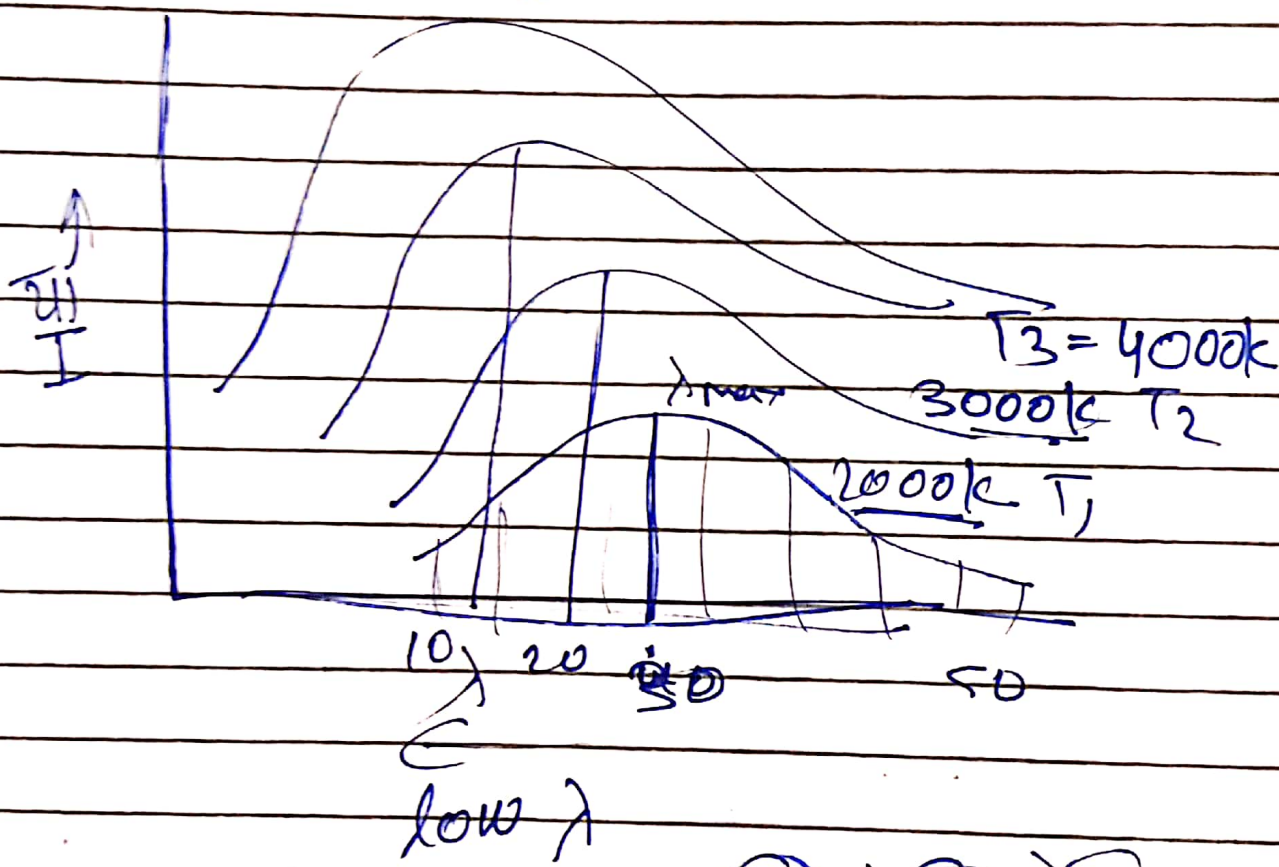 T3 = 4000k
λmax
3000k T2
2000k T1
I
10 20 30 50
λ
low λ